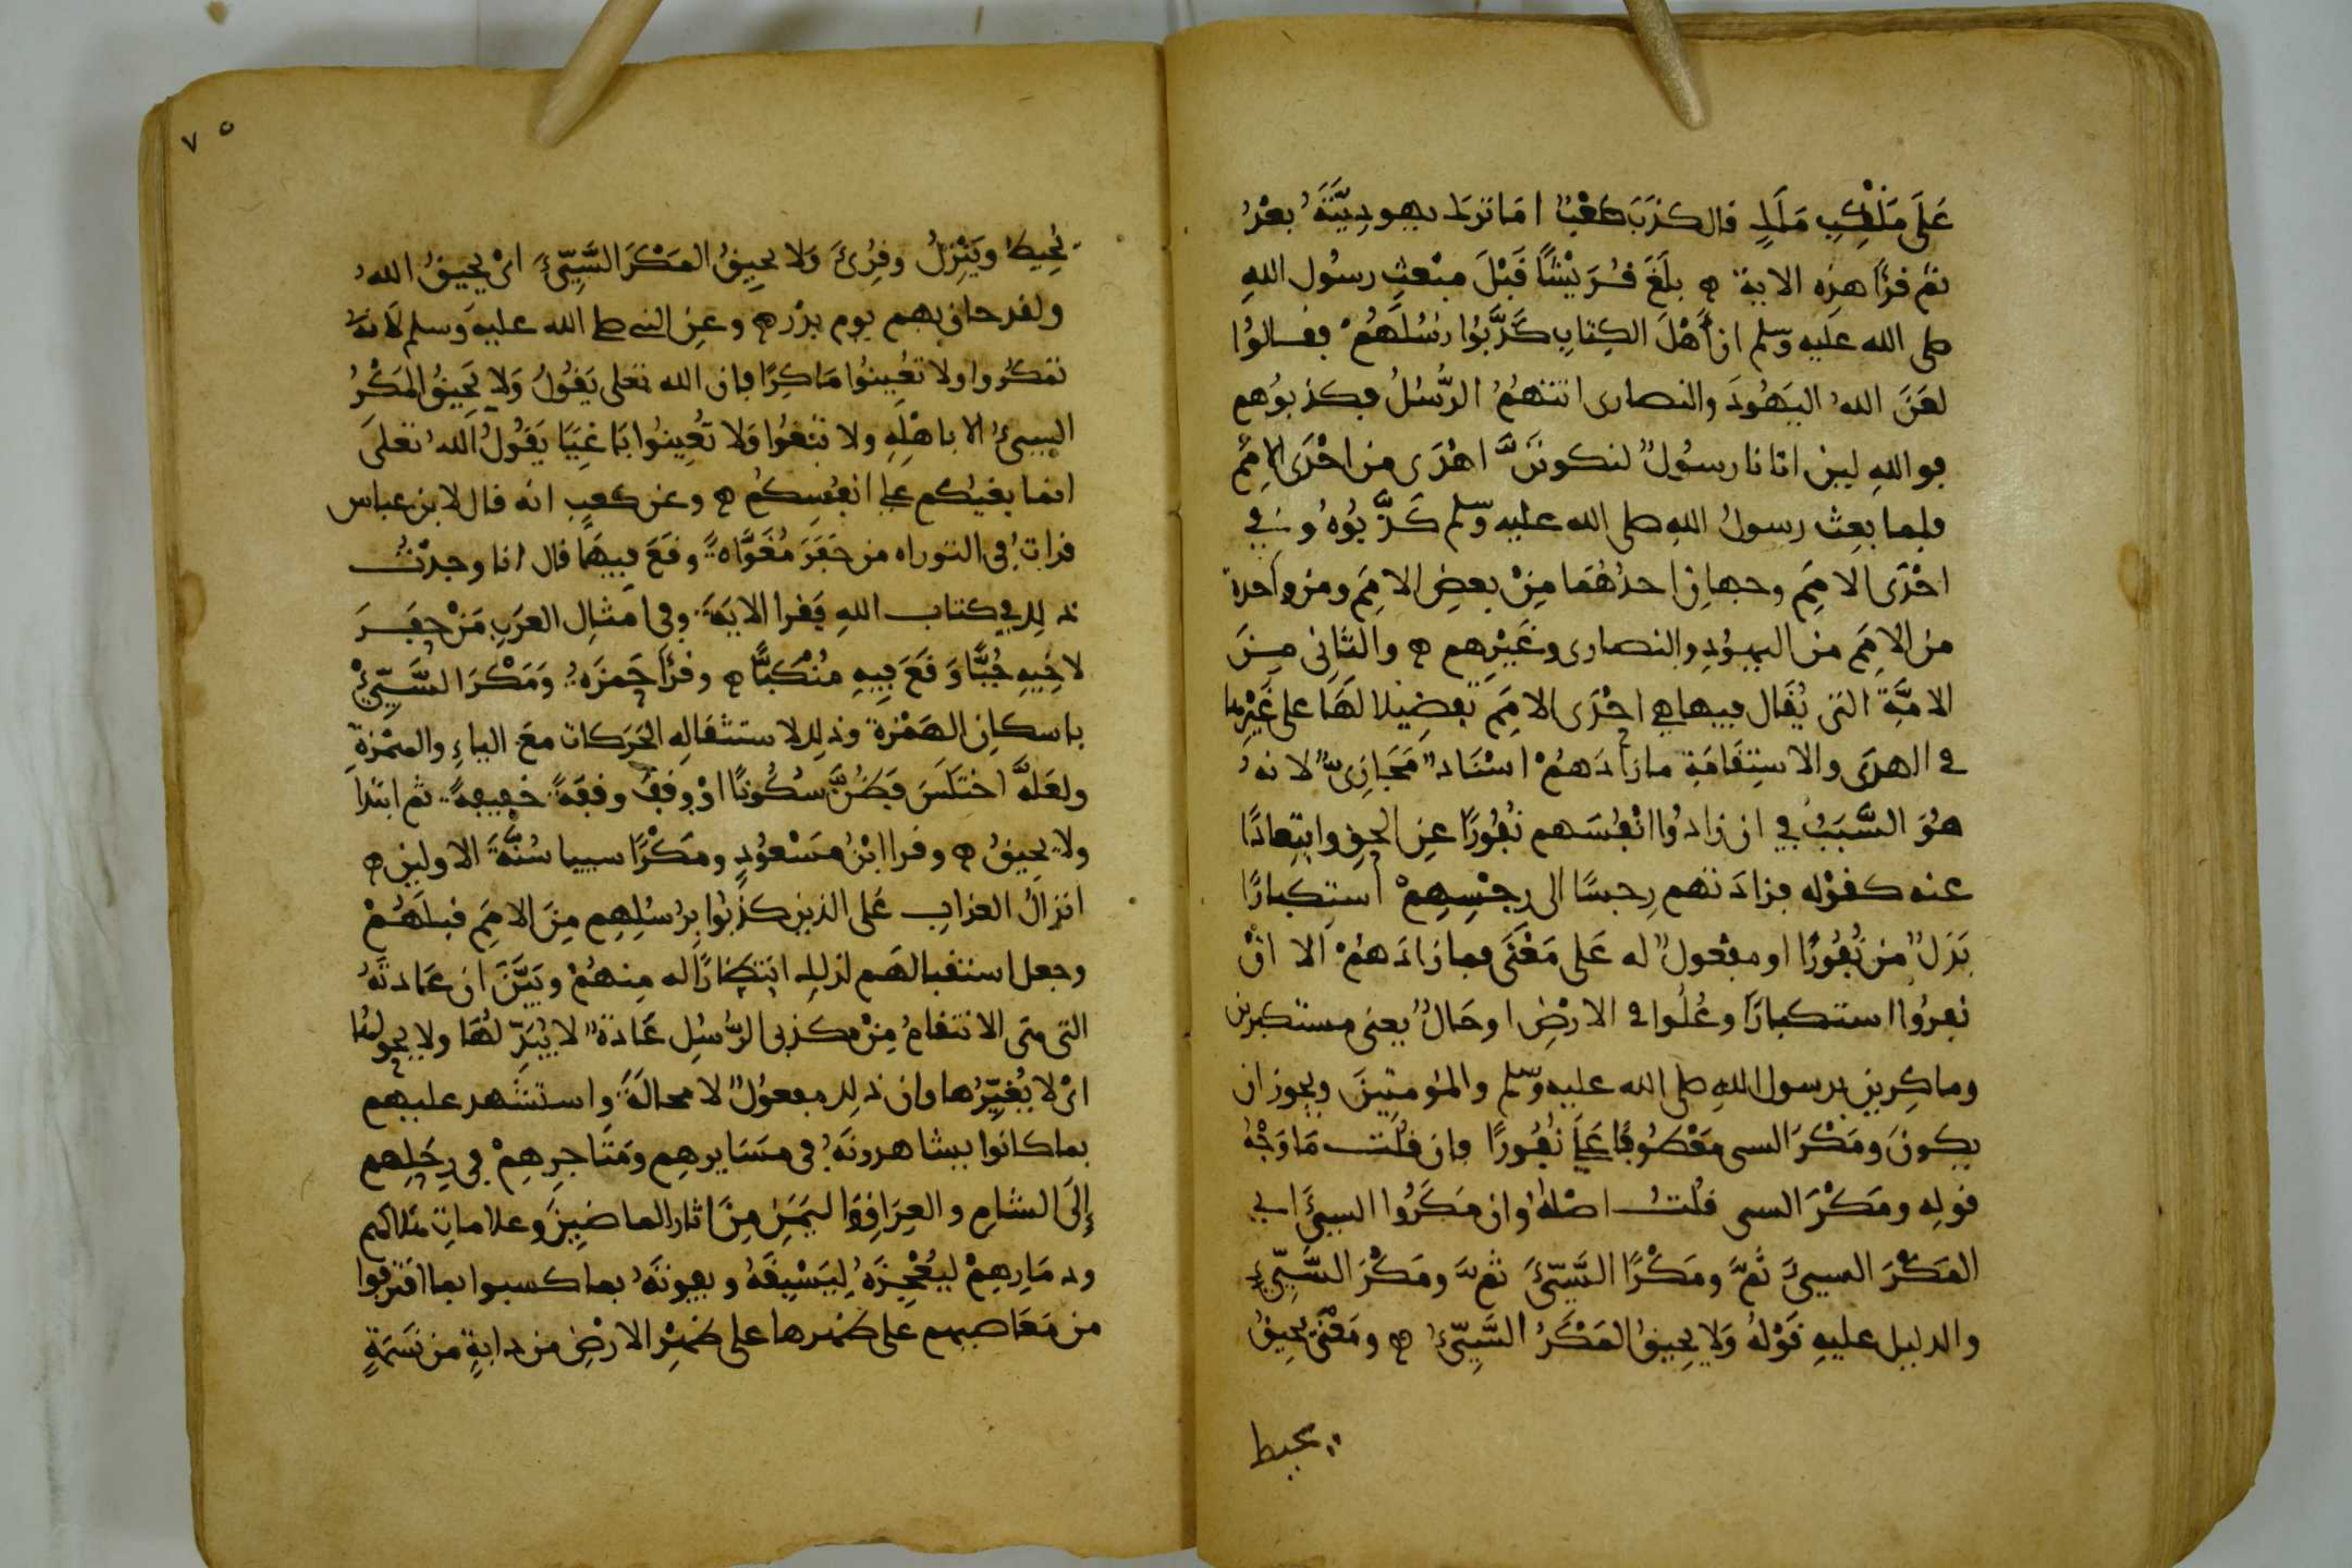 عَلَى مَنْكِبِ مَلَكٍ قال كذَبَ كَعْبٌ امَا ترَك يهودِيَّتَهُ بعْدُ
ثم قرَأ هذِه الايةَ ه بلَغَ قُرَيْشًا قَبْلَ مبْعثِ رسُول اللهِ
صلى الله عَليه وسَلم ان أهْلَ الكِتابِ كَذَّبُوا رُسُلَهُمْ فقـالوُا
لعَنَ اللهُ اليَهُودَ والنصارى اتتهُمُ الرُّسُلُ فكذبوُهم
فوالله لين اتانا رسوُلٌ لنكونَنَّ اهْدَى من احْدَى الامَمِ
فلما بعِث رسولُ اللهِ صلى الله عليه وسلم كَذَّبُوهُ وَفي
احْدَى الامَمِ وجهانِ احدُهُمَا مِنْ بعضِ الامَمِ ومن واحدة
من الامَمِ من اليهوُدِ والنصارى وغَيْرِهم ه والثانِى مِـنَ
الامَّةِ التى يُقال فيها هي احْدَى الامَمِ تفضِيلا لهَا على غَيْرِها
فى الهدَى والاستِقَامَةِ مازادَهُمْ اسْنَادٌ مَجَازِىٌّ لانهُ
هُوَ السَّبَبُ في ان زادُوا انْفُسَهم نفُورًا عنِ الحقِ وابتِعادًا
عنه كقوْله فزادَتهم رِجسًا الى رِجْسِهِمْ استِكبارًا
بَدَلٌ من نُفُورًا او مفعولٌ له عَلى مَعْنَى فمازادَهُمْ الا انْ
نفرُوا استكبارًا وعُلُوا فى الارْضِ او حَالٌ بمعنى مستكبرين
وماكِرِين برسول اللهِ صلى الله عليه وسلم والمؤمنينَ ويجوز ان
يكونَ ومَكْرَ السى مَعْطُوفًا عَلَى نُفُورًا فان قلْتَ مَا وَجْهُ
قولِه ومَكْرَ السى قلتُ اصْلهُ وان مَكَرُوا السيئَ اي
المَكْرَ السيئَ ثمَّ ومَكْرًا السَّيّئَ ثمَّ ومَكْرَ السَّيّئِ
والدليل عليهِ قوْلهُ وَلا يحِيقُ المَكْرُ السَّيّئُ ه ومَعْنَى يحِيقُ
يحيط
٧٥
يُحِيطُ ويَنْزِلُ وقُرِئَ وَلا يحِيقُ المَكْرَ السَّيِّئَ اىْ يُحِيقُ اللهُ
ولقد حاق بهم يوم بدْر ه وعنِ النبي صلى الله عليه وسلم لا
تمكُروا ولا تُعِينوُا مَاكِرًا فان الله تعلى يَقُولُ وَلا يَحِيقُ المَكْرُ
السيئُ الا باهْلِهِ ولا تبْغوُا وَلا تعُينوُا بَاغِيًا يَقُولُ اللهُ تعلى
انما بغيكم على انفُسِكُم ه وعن كعبٍ انه قال لابن عباس
قرات فِى التوراه من حَفَرَ مُغَوَّاةً وقَعَ فيهَا قال انا وجدْتُ
ذلِك في كتاب اللهِ فقرا الايَةَ وفى امثالِ العَرَبِ مَنْ حفَـرَ
لاخِيهِ جُبًّا وَقَعَ فِيهِ مُنْكَبًّا ه وقرَأ حَمزَةُ وَمَكْرَ السَّيّئْ
باسكانِ الهَمْزةِ وذلك لاستثقالِهِ الحَرَكات معَ الياءِ والهمْزةِ
ولعَلّهُ اختَلَسَ فظُنَّ سُكُونًا اوْ وقفَ وقفَةً خفِيفةً ثم ابتدا
ولا يحِيقُ ه وقرا ابْنُ مَسْعُودٍ ومَكْرًا سييا سُنَّةَ الاولين ه
انزالُ العذابِ عَلى الذين كذّبُوا برُسُلِهِم مِنَ الامَمِ قبلَهُمْ
وجعل استقبالهم لذلك انتظارًا له مِنهُمْ وبَيَّنَ ان عَادتَهُ
التى هى الانتقامُ مِنْ مكذبى الرُّسُلِ عَادةٌ لا يُبَدِّلُهَا ولا يحولُها
اىْ لا يُغَيِّرُها وان ذلك مفعوُلٌ لا محالةَ واستشهد عليهم
بما كانوا يشاهدونَهُ فى مسَايرِهِم ومَتاجِرِهِمْ في رِحَلِهم
إلَى الشامِ والعِرَاقِ واليَمَنِ مِنْ اثارِ الماضِينَ وعلاماتِ هلاكهم
ودمَارِهِمْ ليُعْجِزَهُ لِيَسْبِقهُ ويفوتَهُ بما كسبوا بما اقترفوا
من مَعَاصيهم على ظهرها على ظهْرِ الارْضِ من دابةٍ من نَسَمَةٍ